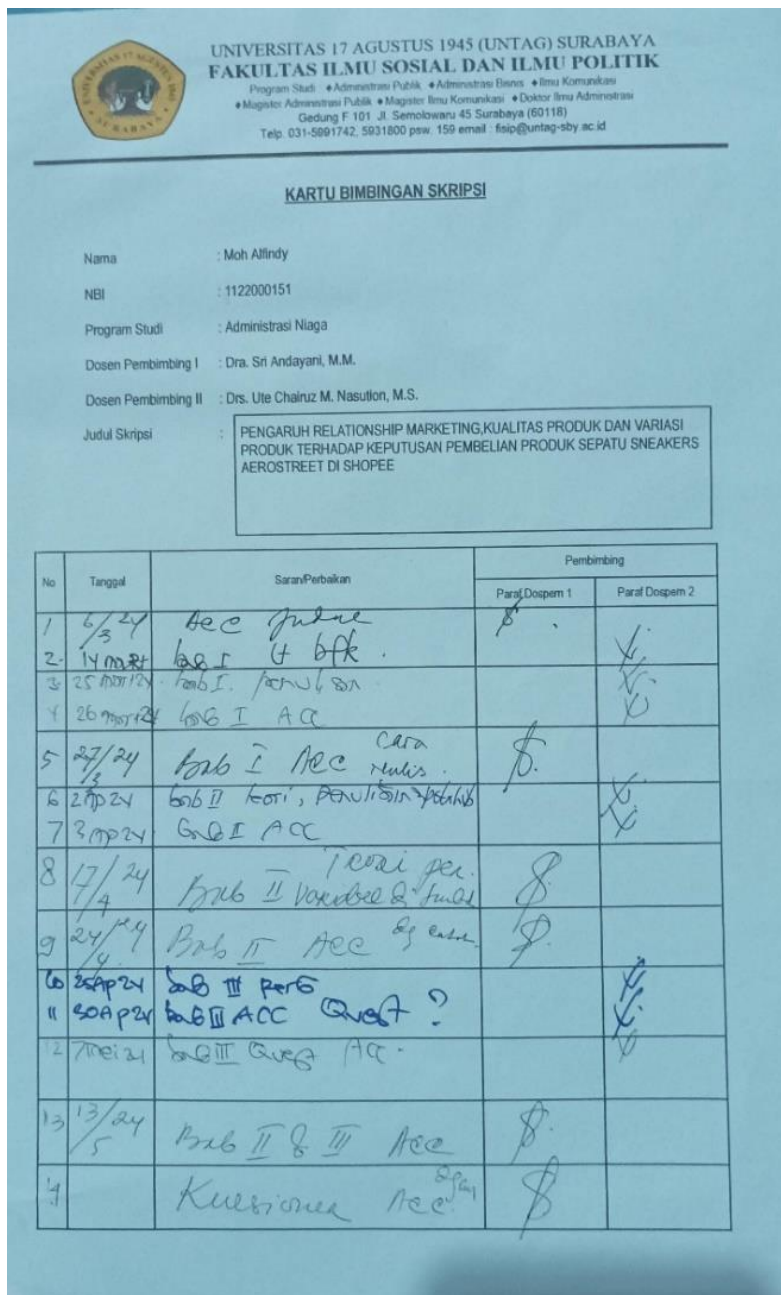 UNIVERSITAS 17 AGUSTUS 1945 (UNTAG) SURABAYA
FAKULTAS ILMU SOSIAL DAN ILMU POLITIK
Program Studi ♦Administrasi Publik ♦Administrasi Bisnis ♦Ilmu Komunikasi
♦Magister Administrasi Publik ♦Magister Ilmu Komunikasi ♦Doktor Ilmu Administrasi
Gedung F 101 Jl. Semolowaru 45 Surabaya (60118)
Telp. 031-5991742, 5931800 psw. 159 email : fisip@untag-sby.ac.id
KARTU BIMBINGAN SKRIPSI
Nama : Moh Alfindy
NBI : 1122000151
Program Studi : Administrasi Niaga
Dosen Pembimbing I : Dra. Sri Andayani, M.M.
Dosen Pembimbing II : Drs. Ute Chairuz M. Nasution, M.S.
Judul Skripsi : PENGARUH RELATIONSHIP MARKETING,KUALITAS PRODUK DAN VARIASI
PRODUK TERHADAP KEPUTUSAN PEMBELIAN PRODUK SEPATU SNEAKERS
AEROSTREET DI SHOPEE
No Tanggal Saran/Perbaikan Pembimbing
Paraf Dospem 1 Paraf Dospem 2
1 6/3 24 Acc Judul
2. 14 mart bab I
3 25 mar 24 bab I.
4 26 mar 24 bab I ACC
5 27/3 24 Bab I Acc Cara
nulis.
6 2 Ap 24 bab II teori,
7 3 Ap 24 ACC
8 17/4 24 Bab II Teori per.
Variabel
9 24/4 24 Bab II Acc
10 25 Ap 24 bab III
11 30 Ap 24 bab III ACC Quest ?
12 7 Mei 24 bab III Quest ACC.
13 13/5 24 Bab II & III Acc
14 Kuesioner Acc